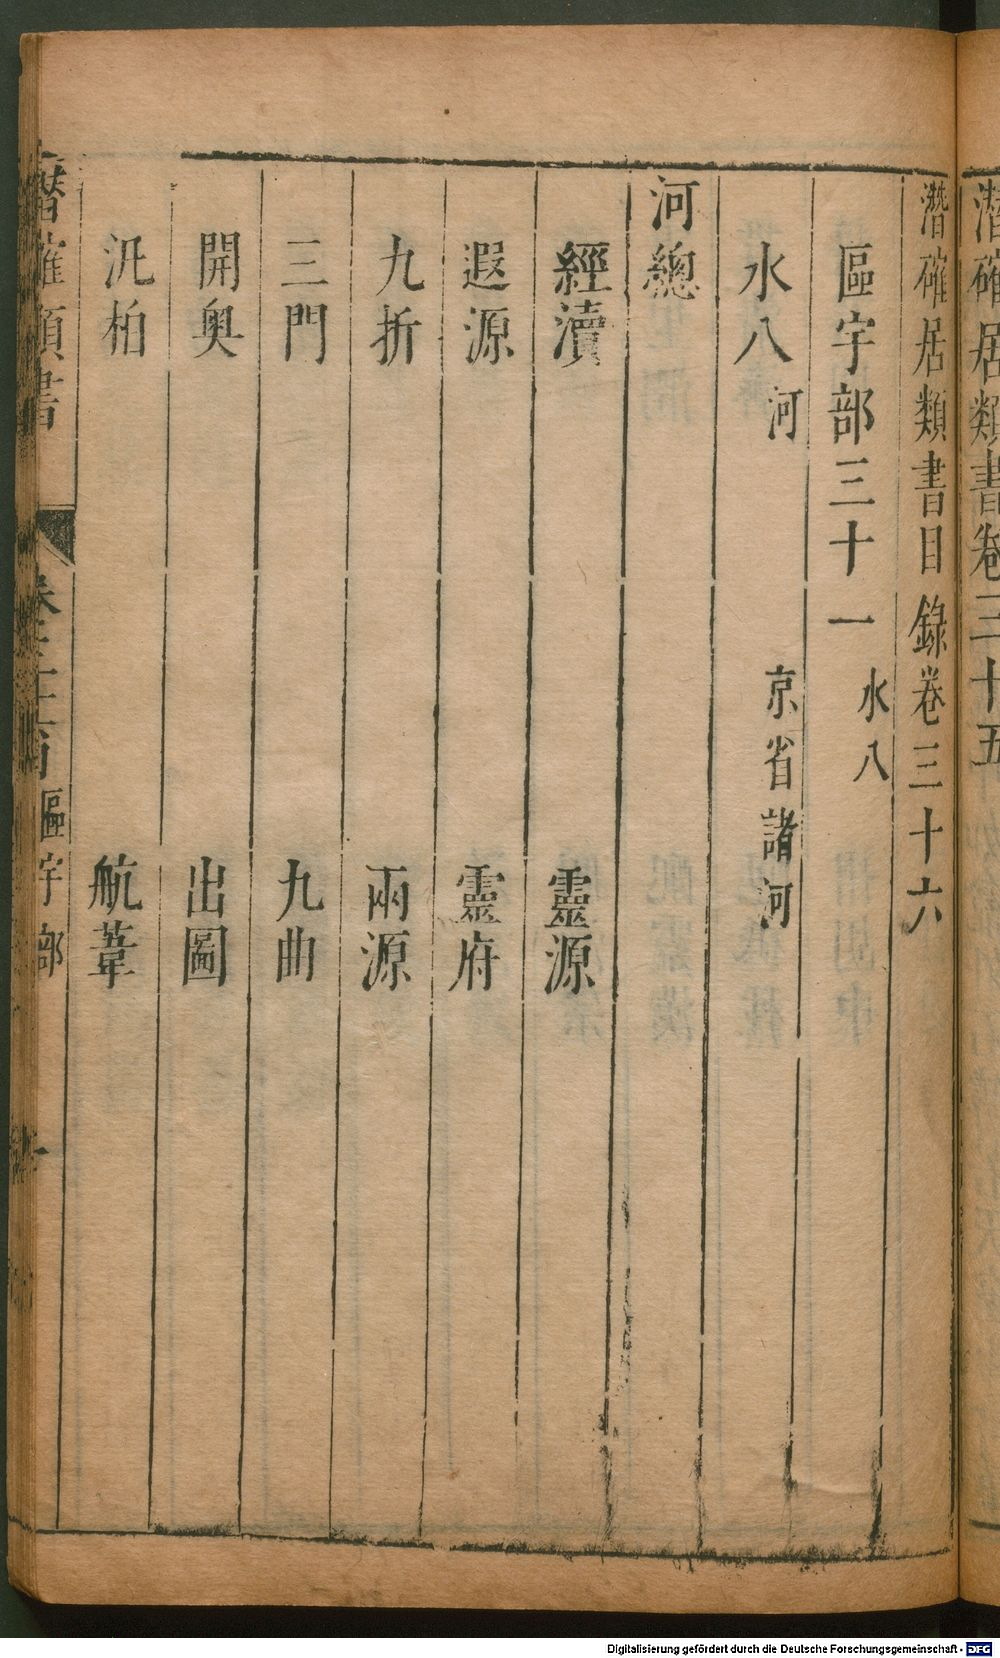 潛確居類書卷三十五
潛確居類書目錄卷三十六
區宇部三十一 水八
水八 河 京省諸河
河總
經瀆 靈源
遐源 靈府
九折 兩源
三門 九曲
開奧 出圖
汎柏 航葦
潛確類書 卷三十六 區宇部
Digitalisierung gefördert durch die Deutsche Forschungsgemeinschaft - DFG